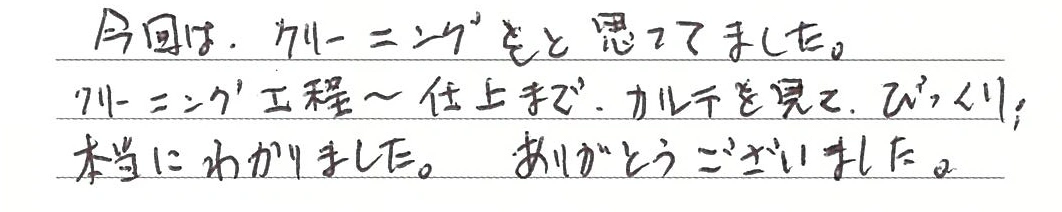 今回は、クリーニングをと思ってました。
クリーニング工程～仕上まで、カルテを見て、びっくり；
本当にわかりました。 ありがとうございました。